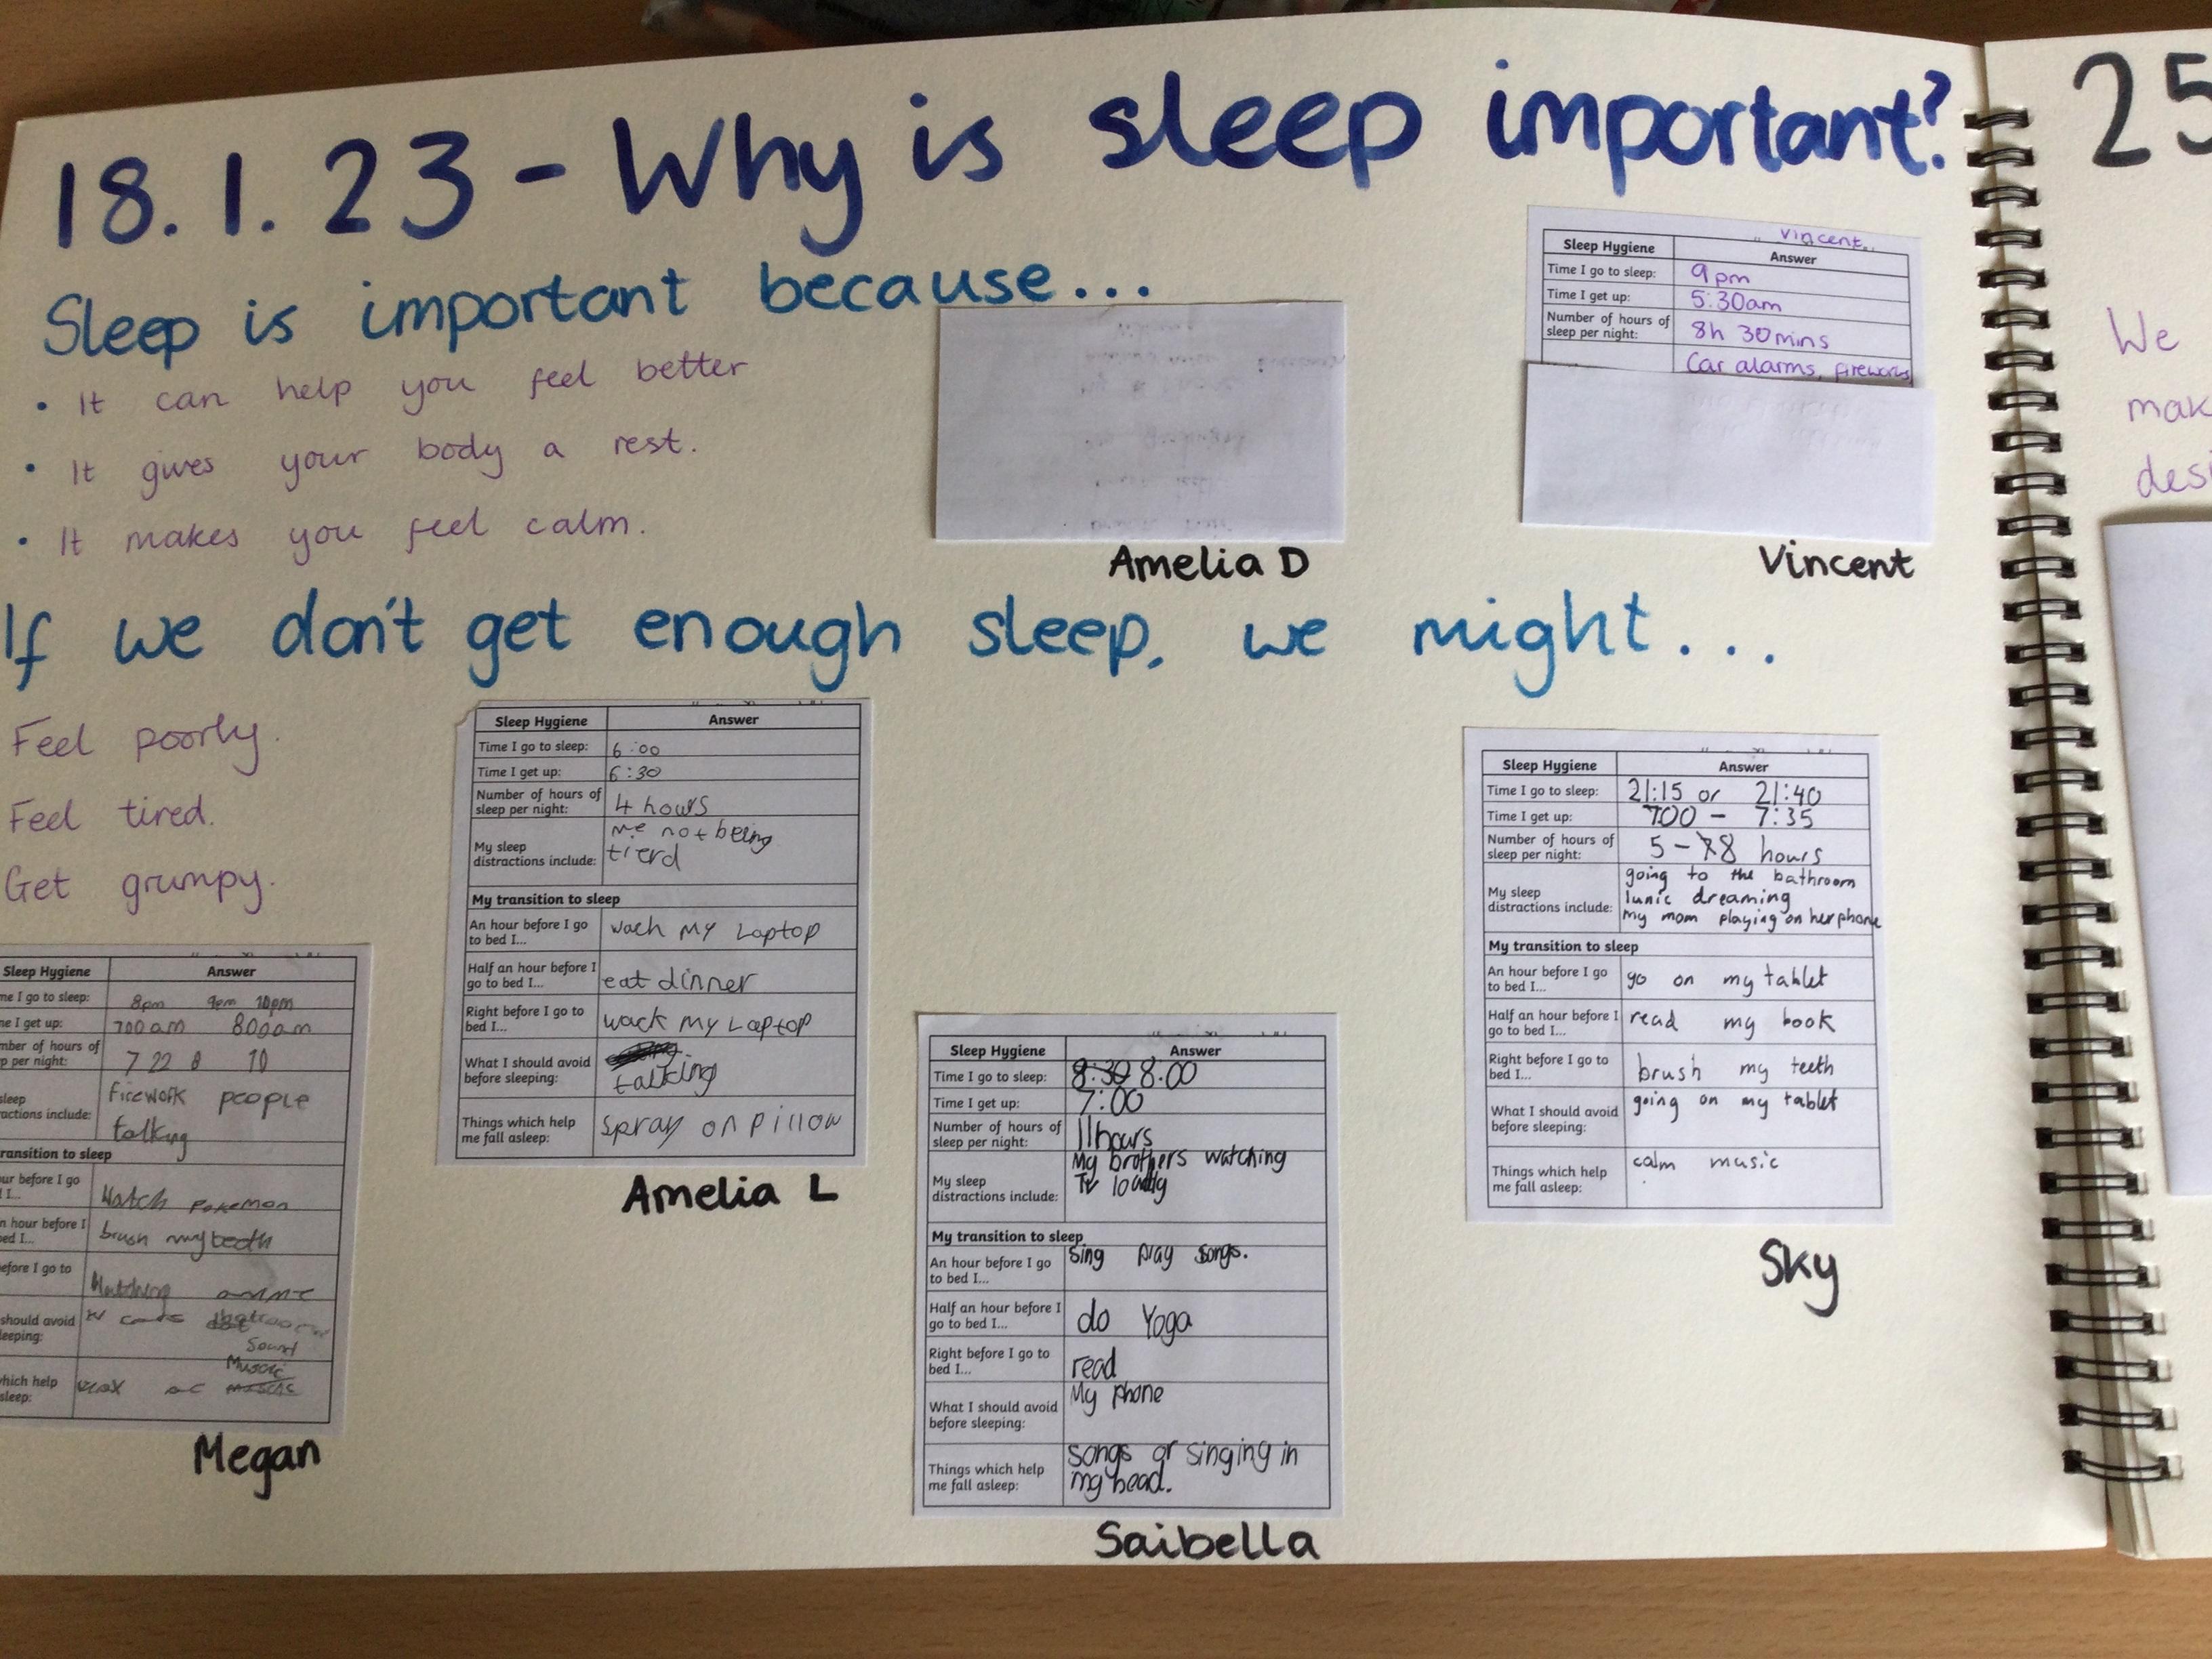 18.1.23 - Why is sleep important?
Sleep is important because...
• It can help you feel better
• It gives your body a rest.
• It makes you feel calm.
Amelia D
Vincent.
Sleep Hygiene Answer
Time I go to sleep: 9pm
Time I get up: 5:30am
Number of hours of
sleep per night: 8h 30mins
Car alarms, fireworks
Vincent
If we don't get enough sleep, we might...
Feel poorly.
Feel tired.
Get grumpy.
Sleep Hygiene Answer
Time I go to sleep: 6:00
Time I get up: 6:30
Number of hours of
sleep per night: 4 hours
My sleep
distractions include: me not being
tierd
My transition to sleep
An hour before I go
to bed I... wach my Laptop
Half an hour before I
go to bed I... eat dinner
Right before I go to
bed I... wack my Laptop
What I should avoid
before sleeping: talking
Things which help
me fall asleep: Spray on pillow
Amelia L
Sleep Hygiene Answer
Time I go to sleep: 21:15 or 21:40
Time I get up: 700 - 7:35
Number of hours of
sleep per night: 5 - 8 hours
My sleep
distractions include: going to the bathroom
lunic dreaming
my mom playing on her phone
My transition to sleep
An hour before I go
to bed I... go on my tablet
Half an hour before I
go to bed I... read my book
Right before I go to
bed I... brush my teeth
What I should avoid
before sleeping: going on my tablet
Things which help
me fall asleep: calm music
Sky
Sleep Hygiene Answer
me I go to sleep: 8pm 9pm 10pm
me I get up: 700am 800am
mber of hours of
p per night: 7 22 8 10
sleep
actions include: firework people
talking
ransition to sleep
ur before I go
I... Watch Pokemon
n hour before I
ed I... brush my teeth
efore I go to
Watching
should avoid
eeping:
Sound
Music
hich help
sleep:
Megan
Sleep Hygiene Answer
Time I go to sleep: 8:30 8:00
Time I get up: 7:00
Number of hours of
sleep per night: 11 hours
My sleep
distractions include: My brothers watching
Tv loudly
My transition to sleep
An hour before I go
to bed I... Sing play songs.
Half an hour before I
go to bed I... do Yoga
Right before I go to
bed I... read
What I should avoid
before sleeping: My phone
Things which help
me fall asleep: Songs or singing in
my head.
Saibella
25
We
mak
desi